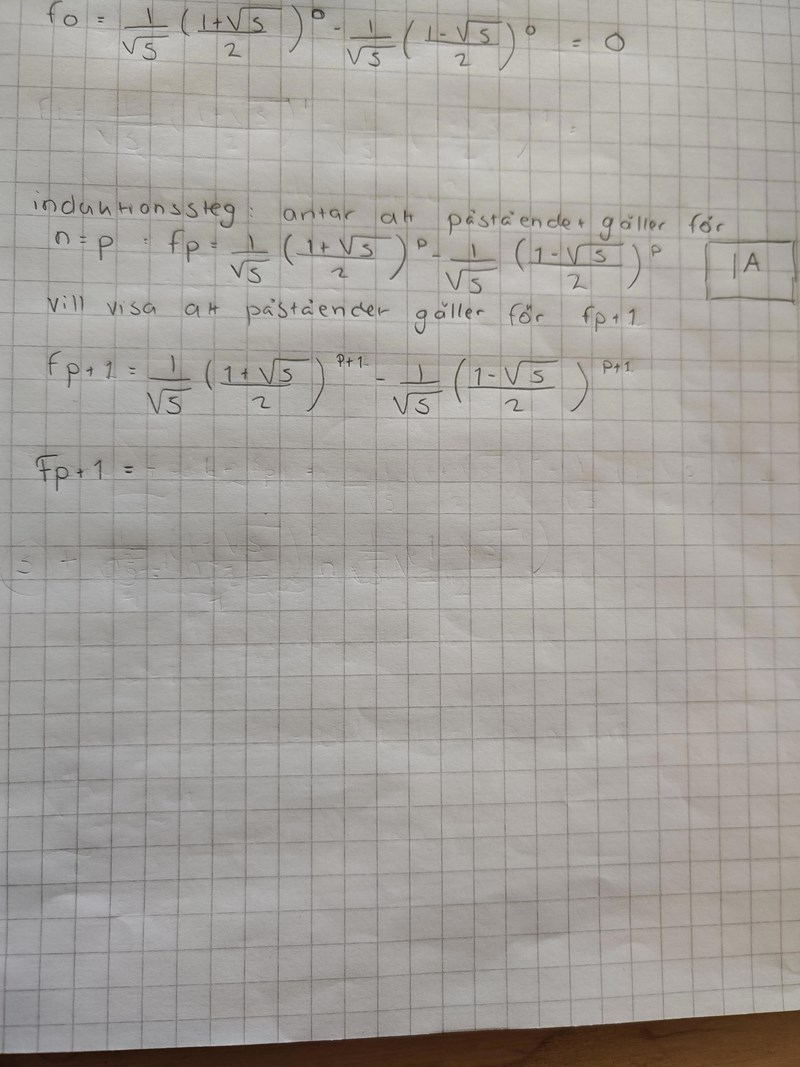 f0 = 1/√5 ((1+√5)/2)^0 - 1/√5 ((1-√5)/2)^0 = 0
induktionssteg: antar att påståendet gäller för
n=p : fp = 1/√5 ((1+√5)/2)^p - 1/√5 ((1-√5)/2)^p IA
vill visa att påståendet gäller för fp+1
fp+1 = 1/√5 ((1+√5)/2)^p+1 - 1/√5 ((1-√5)/2)^p+1
Fp+1 =